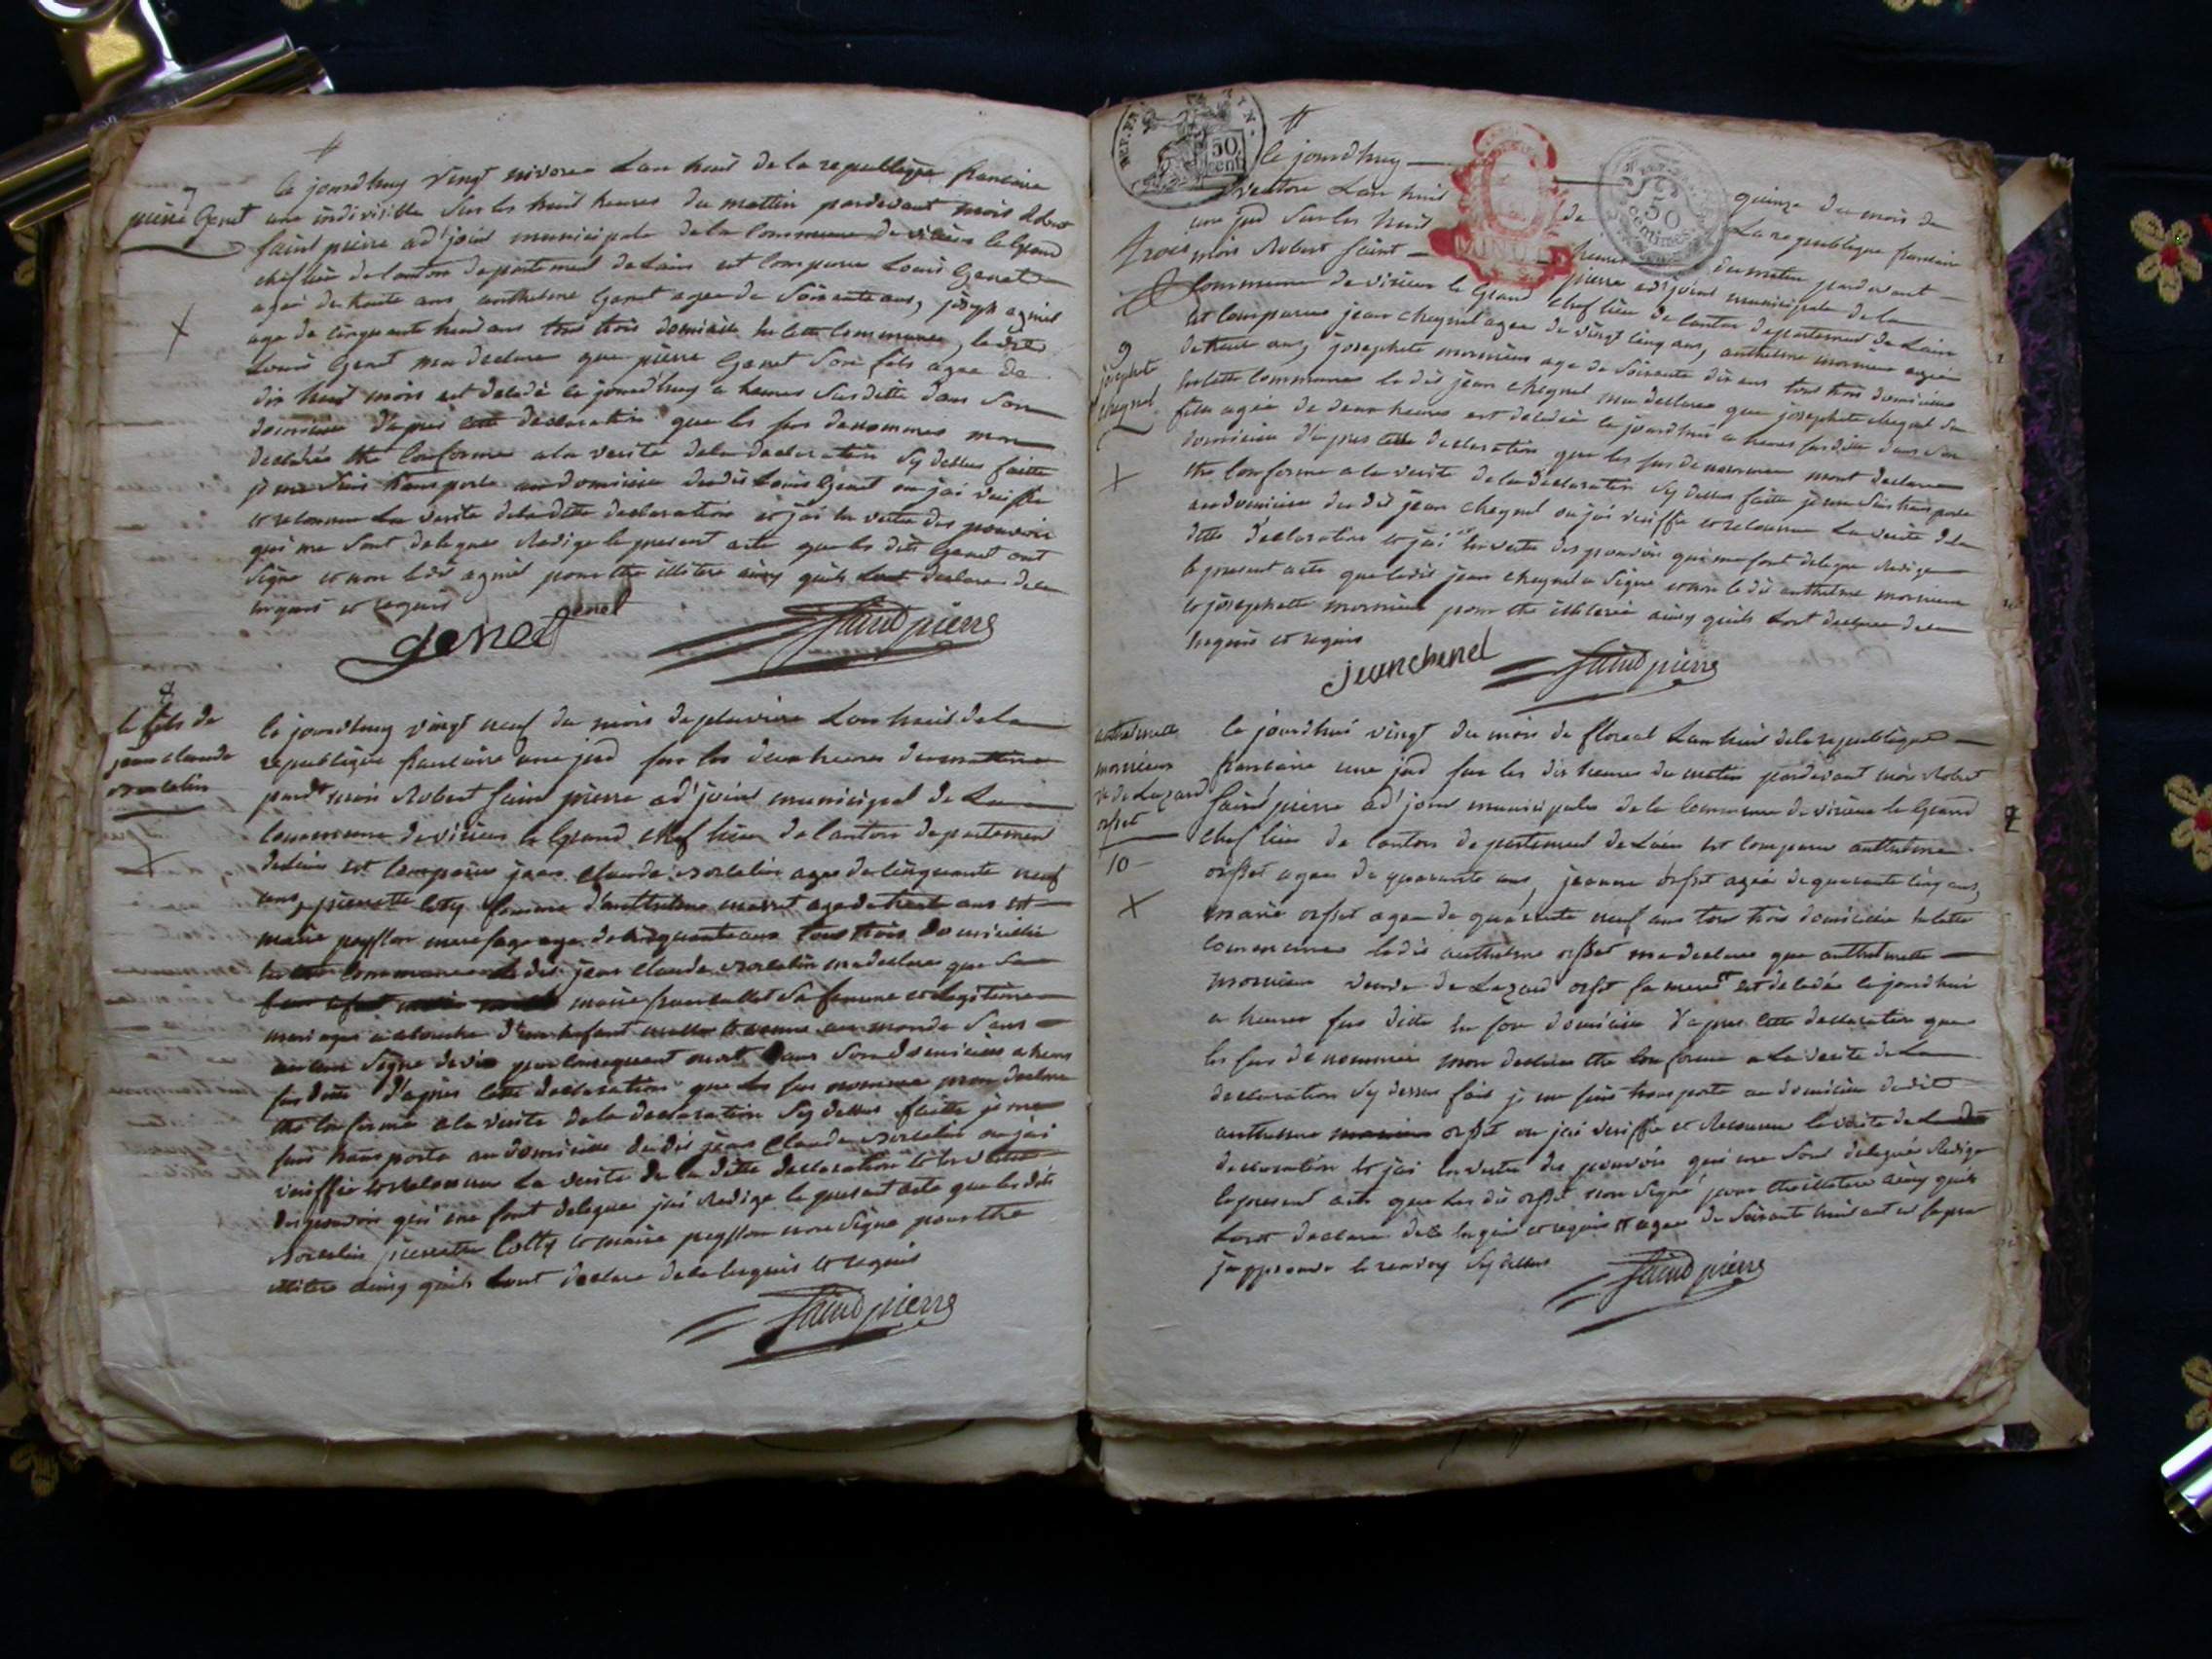 7
pierre Genet
Ce jourdhuy vingt nivose Lan huit de la republique francaise
une indivisible Sur les huit heures du mattin pardevant mois Robert
Saint pierre ad'joint municipale de la Commune de virieu le Grand
chef lieu de Canton departement de Lain est Comparu Louis Genet
agee de trente ans anthelme Genet agee de Soixante ans, joseph
age de cinquante huit ans tous trois domicilie en cette Commune, ledit
Louis Genet ma declare que pierre Genet Son fils agee de
dix huit mois est decedé ce jourd'huy a heures Susditte dans Son
domicile d'apres cette declaration que les sus denommes mon
declarés Etre Conforme a la verité dela declaration Sy dessus faitte
je me Suis transporte au domicile dudit Louis Genet ou jai veriffie
et reconnu La verite deladitte declaration et jai en vertu des pouvoir
qui me Sont delegues Redige le present acte que les dits Genet ont
Signe et non ledit pour etre illitere ainsy quils Lont declare de ce
enquis et requis
genet genet Saint pierre
8
le fils de
jean claude
Ce jourdhuy vingt neuf du mois de pluviose Lan huit de la
republique francaise une jnd sur les deux heures du mattin
pardt mois Robert Saint pierre ad'joint municipal de La
Commune de virieu le Grand chef lieu de Canton departement
de Lain est Comparu jean Claude agee de Cinquante neuf
ans, pierrette Coty femme d'anthelme age de trente ans et
marie peysson mere sage age de Cinquante ans tous trois domicilie
en cette Commune Le dit jean Claude ma declare que Sa
marie Sa femme et legitime
mariage a acouche d'un enfant malle venu au monde Sans
aucun Signe de vie par Consequent mort dans Son domicile a heure
sus ditte d'apres cette declaration que les sus nommés mon declare
etre Conforme a la verite de la declaration Sy dessus faitte je me
suis transporte au domicile dudit jean Claude ou jai
veriffie et reconnu La verite de la ditte declaration et en vertu
des pouvoir qui me sont delegue jai Redige le present acte que les dits
pierrette Cotty et marie peysson non Signe pour etre
illitere ainsy quils Lont declare de ce enquis et requis
Saint pierre
REP. FRA.
50
cent.
50
centimes
MINUTE
Ce jourdhuy quinze du mois de
ventose Lan huit de La republique francaise
une jnd Sur les huit heures du matin pardevant
mois Robert Saint pierre ad'joint municipale de la
Commune de virieu le Grand chef lieu de Canton departement de Lain
est Comparu jean cheynel agee de vingt cinq ans, anthelme mornieu agee
de huit ans, josephete mornieu age de Soixante dix ans tous trois domicilie
en cette Commune le dit jean cheynel ma declare que josephete cheynel Sa
fille agée de deux heures est decedée ce jourdhui a heures susditte dans Son
domicile d'apres cette declaration que les sus denommes mont declare
etre Conforme a la verite de la declaration Sy dessus faitte je me Suis transporte
au domicile du dit jean cheynel ou jai veriffie et reconnu La verite dela
ditte declaration et jai en vertu des pouvoir qui me sont delegue Redige
le present acte que ledit jean cheynel a Signe et non le dit anthelme mornieu
et josephette mornieu pour etre illiteree ainsy quils Lont declare de ce
enquis et requis
jean chenel Saint pierre
9
josephete
cheynel
anthelmette
mornieux
ve de Lazard
orset
10
Ce jourdhui vingt du mois de floreal Lan huit dela republique
francaise une jnd sur les dix heures du matin pardevant mois Robert
Saint pierre ad'joint municipale de la Commune de virieu le Grand
chef lieu de Canton departement de Lain est Comparu anthelme
orsset agee de quarante ans, jeanne orsset agée de quarante cinq ans,
marie orsset agee de quarante neuf ans tous trois domicilie en cette
Commune ledit anthelme orsset ma declare que anthelmette
mornieu veuve de Lazard orset sa mere est decedée ce jourdhui
a heures sus ditte en son domicile d'apres cette declaration que
les sus denommée mon declare etre Conforme a La verite de La
declaration Sy dessus fait je me suis transporte au domicile dudit
anthelme orsset ou jai veriffie et Reconnu la verite de La dte
declaration et jai en vertu des pouvoir qui me Sont delegués Redige
le present acte que Les dit orsset non Signé pour etre illitere ainsy quils
Lont declare de ce enquis et requis agee de Soixante huit ans
japprouve le renvoy Sy dessus
Saint pierre